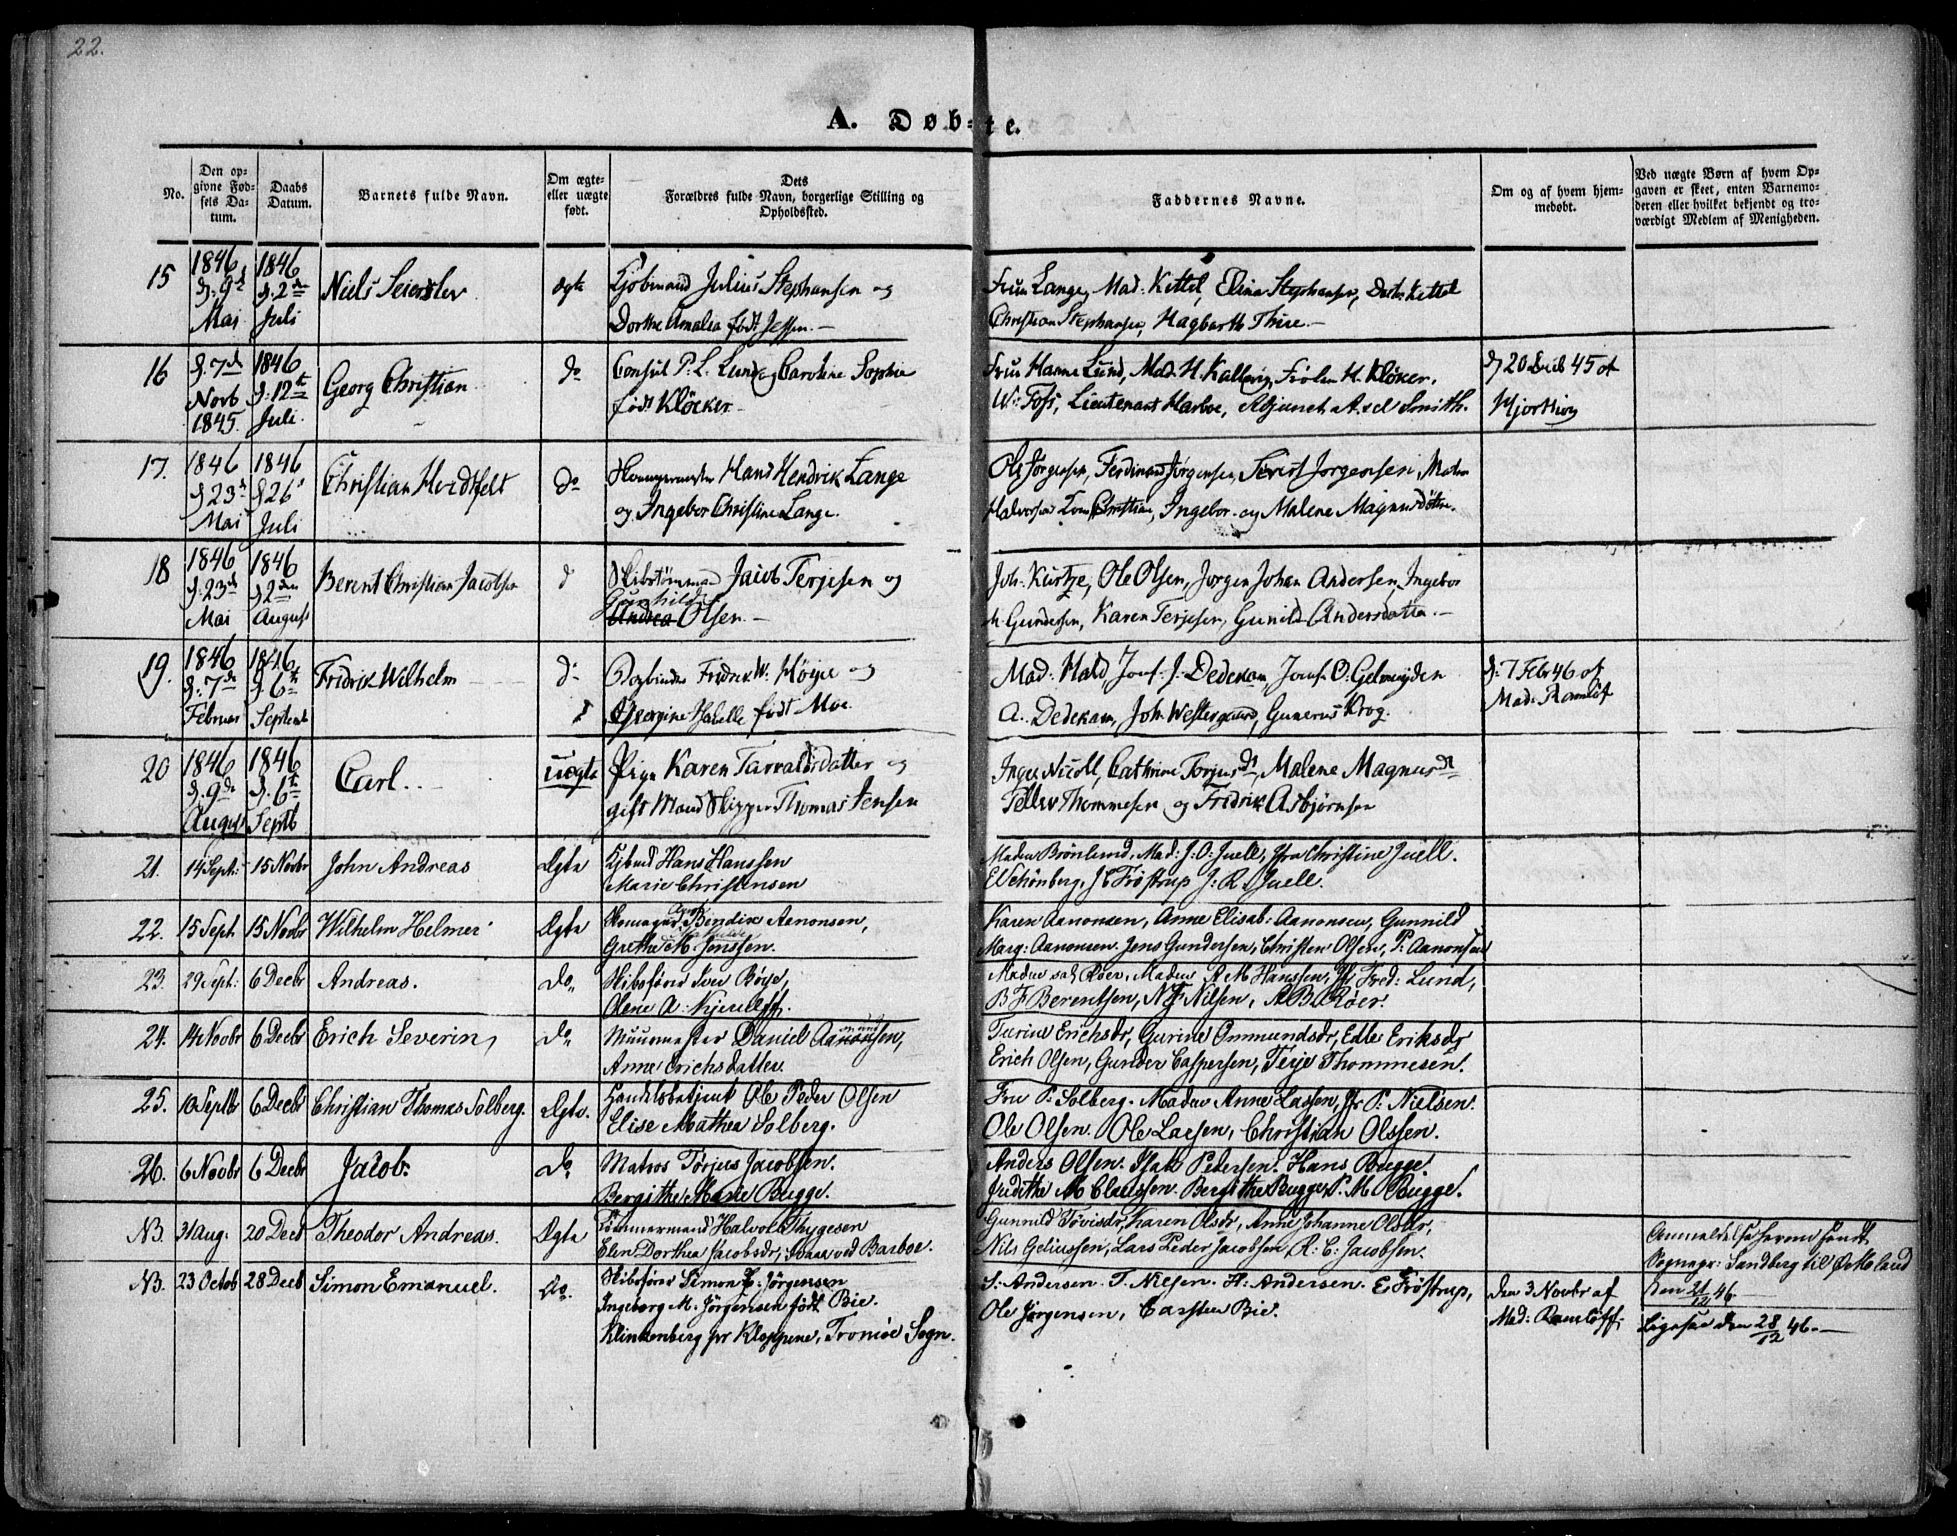 22.
A. Døb-te.
No.
Den op-
givne Fød-
sels Da-
tum.
Daabs
Datum.
Barnets fulde Navn.
Om ægte-
eller uægte
født.
Dets
Forældres fulde Navn, borgerlige Stilling og
Opholdssted.
Faddernes Navne.
Om og af hvem hjem-
medøbt.
Ved uægte Børn af hvem Op-
gaven er skeet, enten Barnemo-
deren eller hvilket bekjendt og tro-
værdigt Medlem af Menigheden.
15
1846
d. 9de
Mai
1846
d. 2den
Juli
Niels Seierslev
ægte
Kjøbmand Julius Stephansen og
Dorthe Amalia født Jessen.
Frue Lange, Mad. Kittel, Elina Stephansen, Dorth. Kittel
Christian Stephansen, Hagbarth Thise.
16
d. 7de
Novb
1845.
1846
d. 12te
Juli.
Georg Christian
do
Consul P. L. Lund og Caroline Sophie
født Kløcker
Frue Hanne Lund, Mad. H. Kallevig, Frøken H. Kløcker,
W. Foss, Lieutenant Harboe, Adjunct Axel Smith.
d 20 Decb 45 af
Hjorthøy
17.
1846
d 23de
Mai
1846
d 26
Juli
Christian Hvidtfelt
do
Hans Hendrik Lange
og Ingebor Christine Lange.
Ole Jørgensen, Ferdinand Jørgensen, Severt Jørgensen, Maden
Halvorsen Christian, Ingebor og Malene Magnusdøttre.
18
1846
d. 23de
Mai
1846
d. 2den
August
Berent Christian Jacobsen
d
Skibstømmermd Jacob Terjesen og
Gunhilde
Andrea Olsen.
Joh. Kurtze, Ole Olsen, Jørgen Johan Andersen, Ingebor
M. Gundersen, Karen Terjesen, Gunild Andersdatter.
19.
1846
d. 7de
Februar
1846
d. 6te
Septemb
Fridrik Wilhelm
do
Bogbinder Fridrik W. Høye og
Georgine født Moe.
Mad. Hald, Jomf. J. Dedekam, Jomf. O. Gelmeyden
A. Dedekam, Joh. Westergaard, Gunerus Krog.
d. 7 Febr 46 af
Mad. Ramløf
20
1846
d. 9de
August
1846
d. 6te
Septb
Carl.
Uægte
Pige Karen Tarvaldsdatter og
gift Mand Skipper Thomas Jensen
Inger Nicoll, Cathrine Torjusdt, Malene Magnusdt
Tellev Thommesen og Fridrik Asbjørnsen
21.
14 Sept:
15 Novbr
John Andreas
Ægte
Kjbmd Hans Hanssen
Marie Christensen
Maden Brønlund, Mad: J: O: Juell, Jfra Christine Juell.
E Schönberg, J C Frøstrup J: R. Juell.
22.
15 Sept
15 Novbr
Wilhelm Helmer
Ægte
Bendix Aanonsen,
Grethe M. Jenssen.
Karen Aanonsen, Anne Elisab: Aanonsen, Gunnild
Marg: Aanonsen. Jens Gundersen, Christen Olsen, P: Aanonsen
23.
29 Sept:
6 Decbr
Andreas.
Do
Skibsfører Iver Bøye,
Olene A: Kjerulff.
Maden Røer, Maden A M Hanssen, Jfr Fred: Lund,
B F Berentsen, N F Nilsen, A B Røer.
24.
14 Novbr
6 Decbr
Erich Severin,
Do
Muurmester Daniel Aanonsen,
Anne Erichsdatter.
Tarine Erichsdr, Gurine Ommundsdr, Edle Eriksdr
Erich Olsen, Gunder Caspersen, Terje Thommesen.
25.
10 Septbr
6 Decbr
Christian Thomas Solberg.
Ægte.
Handelsbetjent Ole Peder Olsen
Elise Mathea Solberg.
Fru P. Solberg. Maden Anne Lassen, Jfr P: Nielsen.
Ole Olsen. Ole Larsen, Christian Olssen.
26.
6 Novbr
6 Decbr
Jacob.
Do
Matros Tørjus Jacobsen.
Bergithe Marie Bugge.
Anders Olsen. Isak Pedersen. Hans Bugge.
Judithe M Claussen. Bergithe Bugge, P. M. Bugge.
NB.
31 Aug.
20 Decb
Theodor Andreas.
Ægte
Tømmermand Halvol Thygesen
Elen Dorthea Jacobsdr, Svaa ved Barboe.
Gunnild Tøvisdr, Karen Olsdr, Anne Johanne Olsdr,
Nils Geliussen, Lars Peder Jacobsen, R: C: Jacobsen.
Anmeldelse herom sendt
Sognepr: Sandberg til Ø. Moland
den 21/12 46.
NB.
23 Octob
28 Decb
Simon Emanuel.
Do.
Skibsfører Simon C. Jörgensen
Ingeborg M. Jörgensen født Bie.
Klinkenberg pr Kloppene, Tromøe Sogn.
S: Andersen. T. Nielsen. H: Andersen. E Frøstrup,
Ole Jørgensen, Carsten Bie.
den 3 Novbr af
Mad: Ramløff.
Ligesaa den 28/12 46.